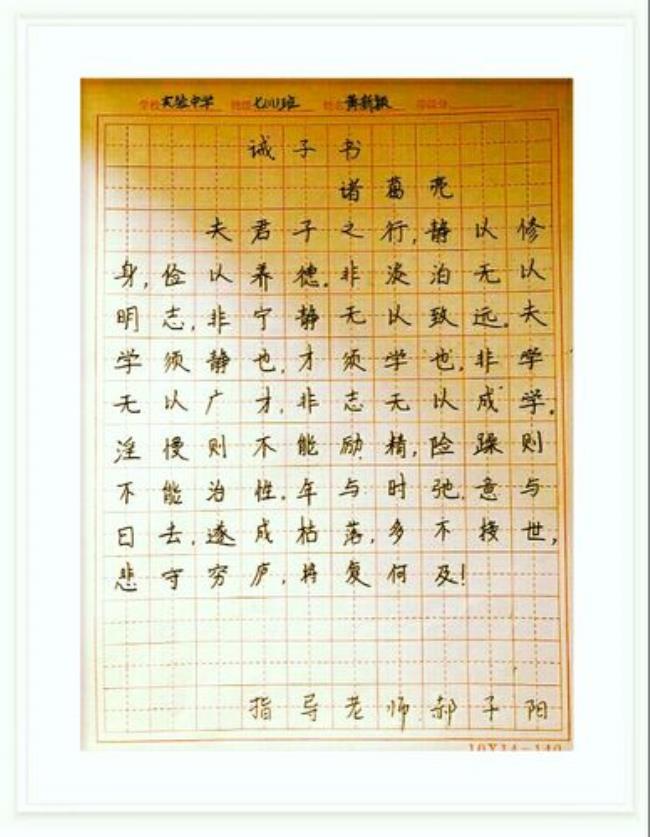 学校 实验中学 班级 七(1)班 姓名 黄新颖
诫子书
诸葛亮
夫君子之行,静以修
身,俭以养德.非淡泊无以
明志,非宁静无以致远.夫
学须静也,才须学也,非学
无以广才,非志无以成学.
淫慢则不能励精,险躁则
不能治性.年与时驰,意与
日去,遂成枯落,多不接世,
悲守穷庐,将复何及!
指导老师郝子阳